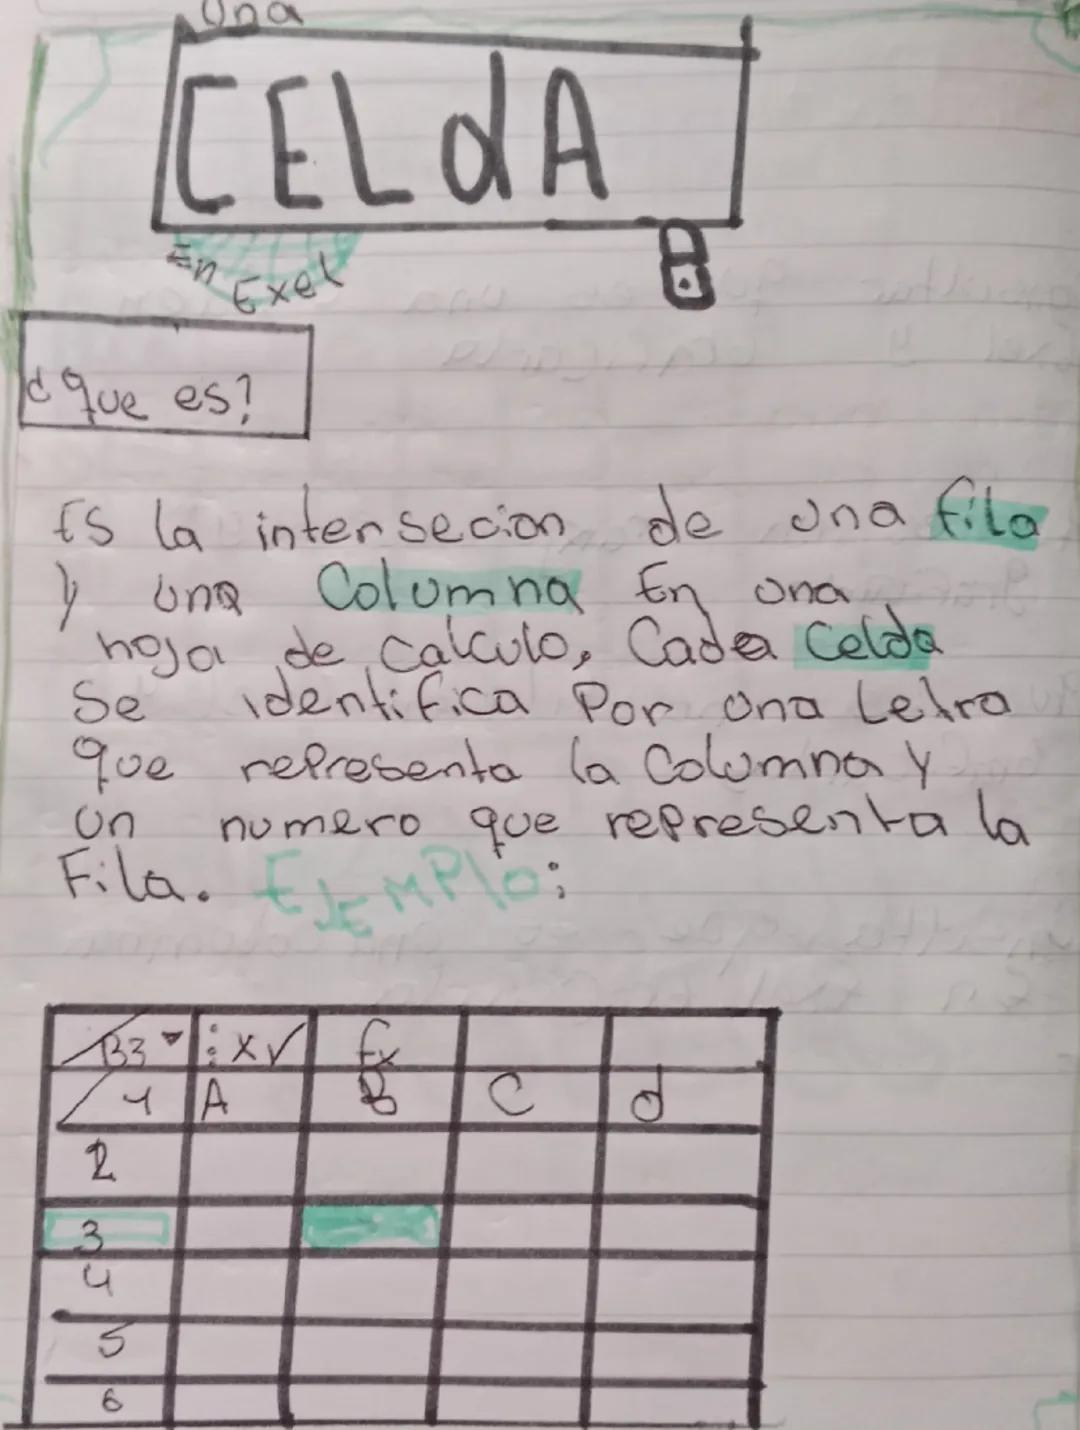 Una
CELdA
En Exel
¿que es?
Es la intersecion de una fila
y una Columna En una
hoja de calculo, Cada Celda
Se identifica Por una Letra
que representa la Columna y
un numero que representa la
Fila. EJEMPlo:
B3 : X ✓ fx
4 A B C d
2
3
4
5
6